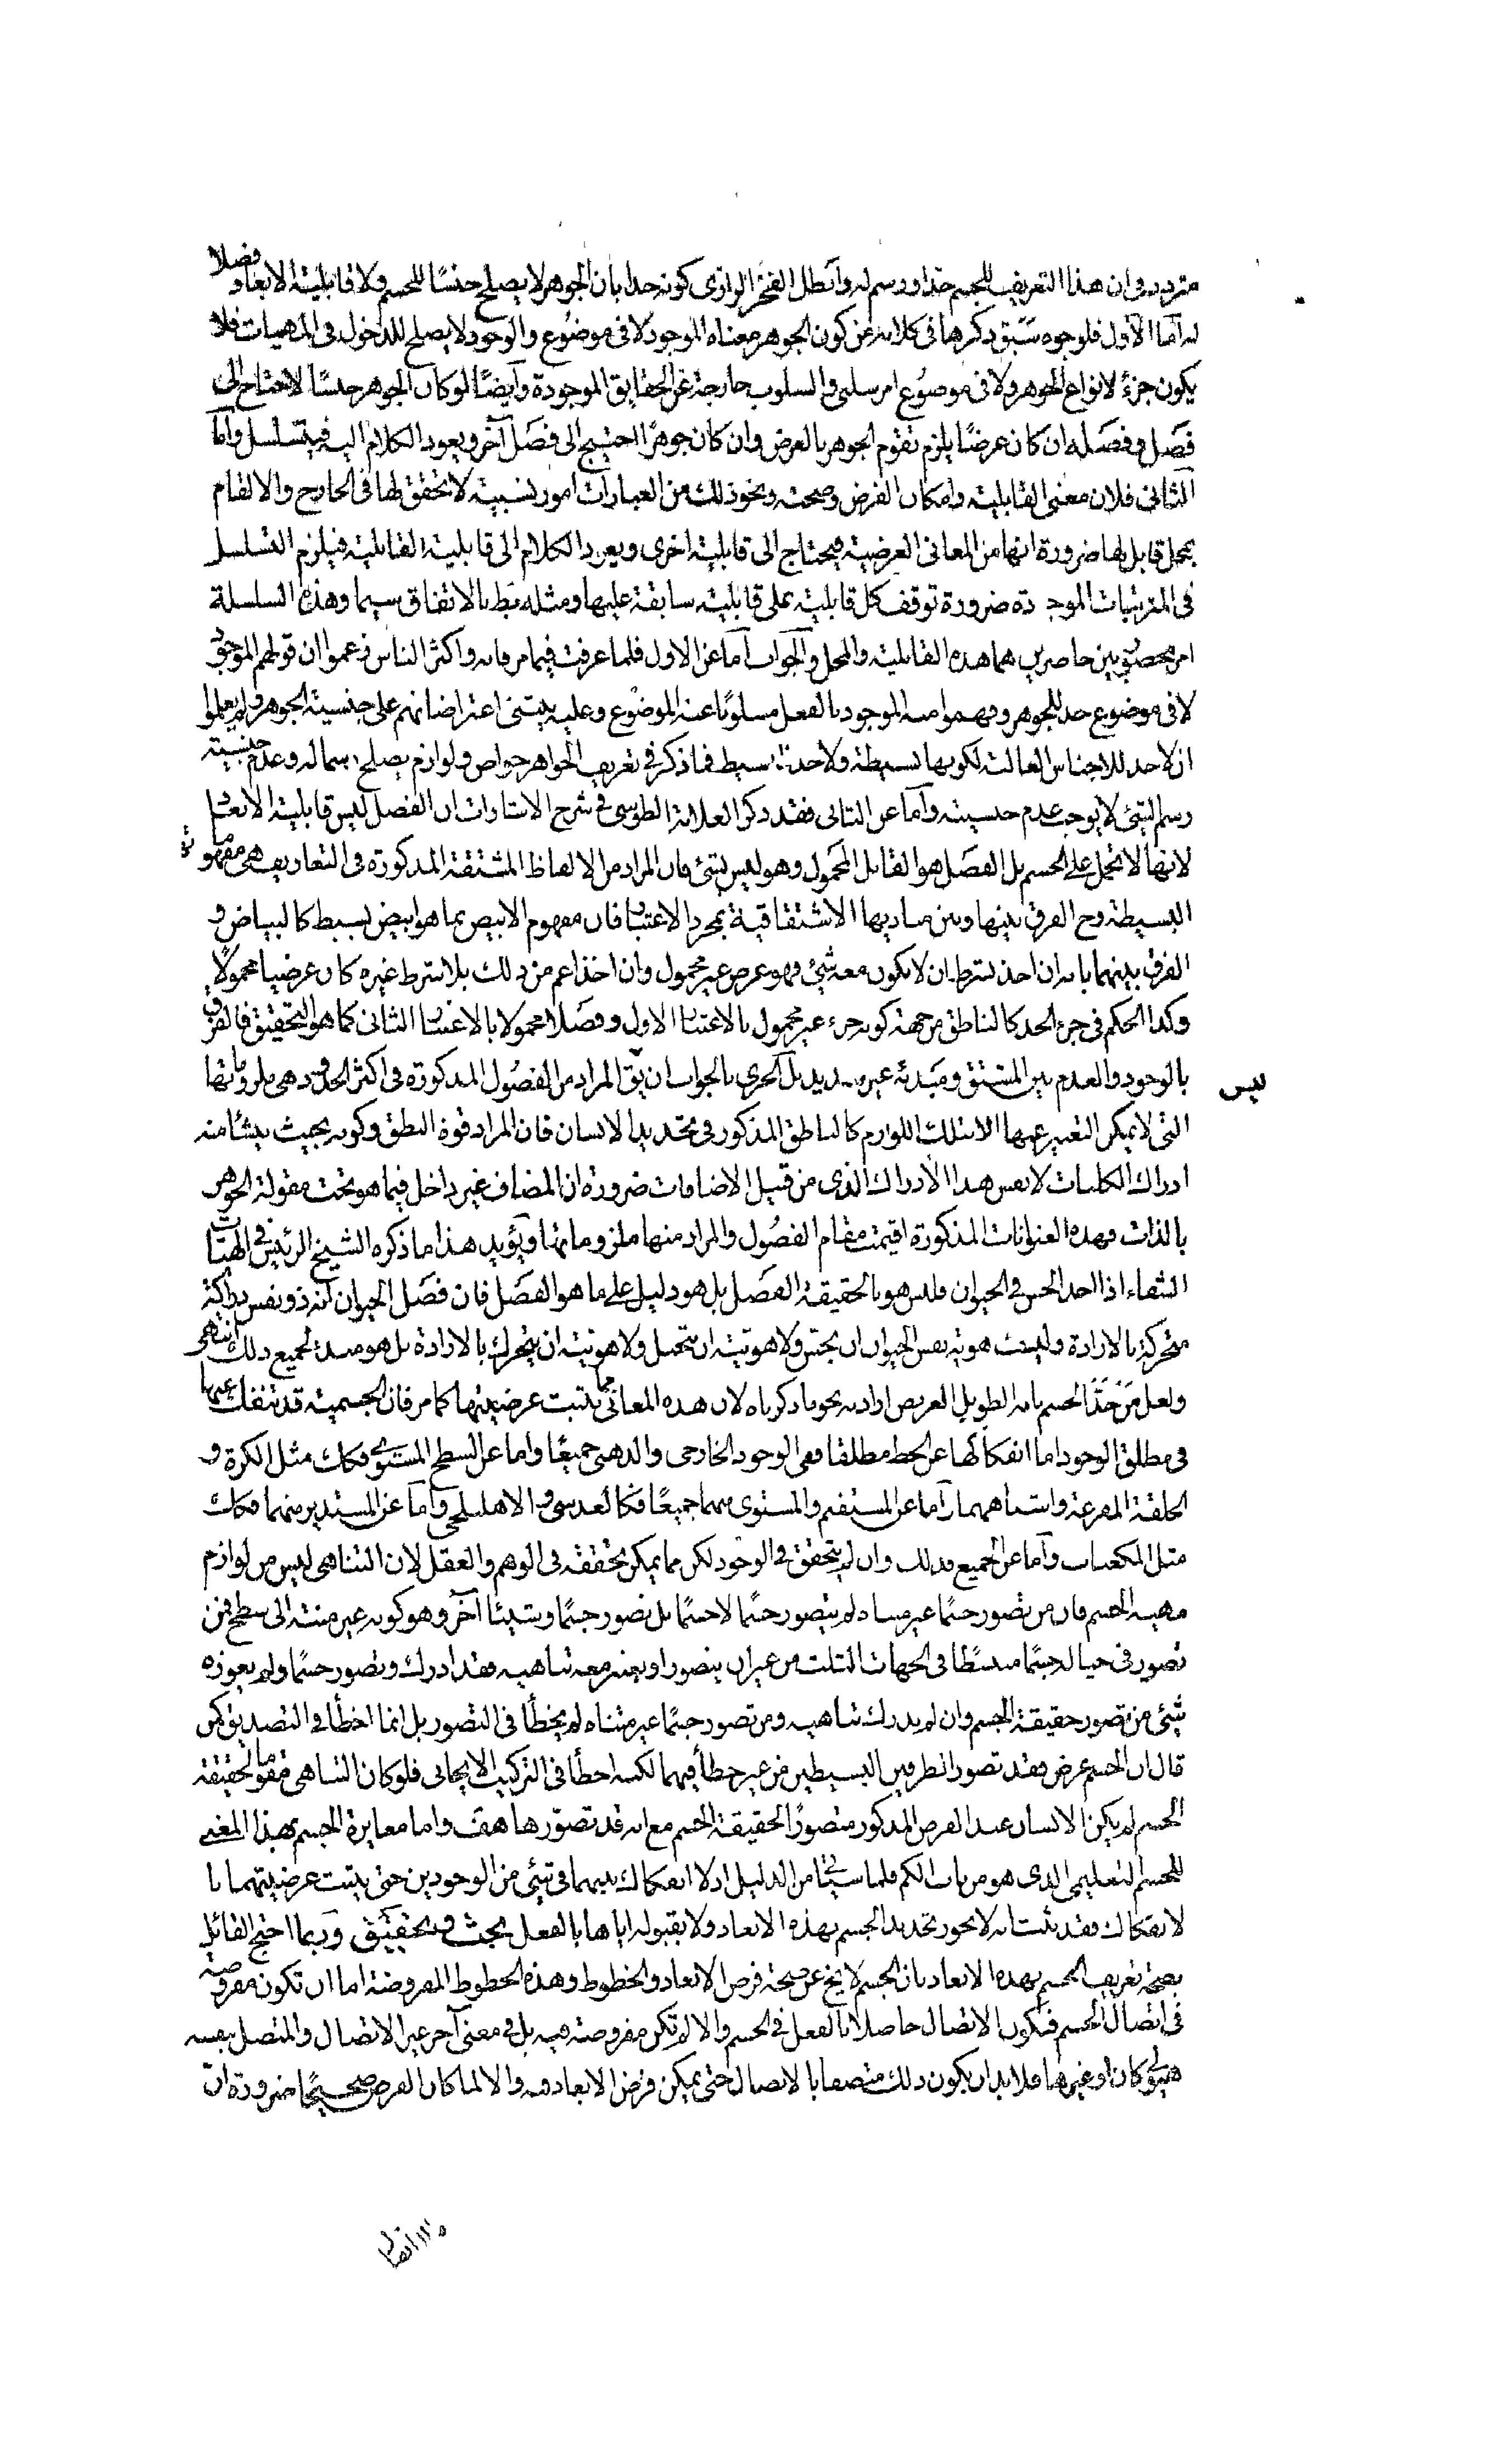 متردد في ان هذا التعريف للجسم حد او رسم له وابطل الفخر الرازى كونه حدا بان الجوهر لا يصلح جنسًا للجسم ولا قابلية الابعاد فصلا
له اما الاول فلوجوه سبق ذكرها في كلامه من كون الجوهر معناه الموجود لا فى موضوع والوجود لا يصلح للدخول فى المهيات فلا
يكون جزءً لانواع الجوهر ولا فى موضوع امر سلبى والسلوب خارجة عن الحقايق الموجودة وايضًا لو كان الجوهر جنسًا لاحتاج الى
فصل وفصله ان كان عرضًا يلزم تقوم الجوهر بالعرض وان كان جوهرًا احتيج الى فصل آخر ويعود الكلام اليه فيتسلسل واما
الثانى فلان معنى القابلية وامكان الفرض وصحته ونحو ذلك من العبارات امور نسبية لا تحقق لها فى الخارج والا لقام
بمحل قابل لها ضرورة انها من المعانى العرضية فيحتاج الى قابلية اخرى ويعود الكلام الى قابلية القابلية فيلزم التسلسل
فى المترتبات الموجودة ضرورة توقف كل قابلية على قابلية سابقة عليها ومثله بط بالاتفاق سيما وهذه السلسلة
امر محصور بين حاصرين هما هذه القابلية والمحل والجواب اما عن الاول فلما عرفت فيما مر فانه واكثر الناس زعموا ان قولهم الموجود
لا فى موضوع حد للجوهر وفهموا منه الموجود بالفعل مسلوبًا عنه الموضوع وعليه يبتنى اعتراضاتهم على جنسية الجوهر ولم يعلموا
ان لا حد للاجناس العالية لكونها بسيطة ولا حد لبسيط فما ذكر فى تعريف الجواهر خواص ولوازم يصلح رسما له وعدم جنسية
رسم الشئ لا يوجب عدم جنسيته واما عن الثانى فقد ذكر العلامة الطوسى فى شرح الاشارات ان الفصل ليس قابلية الابعاد
لانها لا تحمل على الجسم بل الفصل هو القابل المحمول وهو ليس بشئ فان المراد من الالفاظ المشتقة المذكورة فى التعاريف هى مفهوماتها
البسيطة وح الفرق بينها وبين مباديها الاشتقاقية بمجرد الاعتبار فان مفهوم الابيض بما هو ابيض بسيط كالبياض و
الفرق بينهما بانه ان اخذ بشرط ان لا يكون معه شئ فهو عرض غير محمول وان اخذ اعم من ذلك بلا شرط غيره كان عرضيا محمولًا
وكذا الحكم فى جزء الحد كالناطق من جهة كونه جزء غير محمول بالاعتبار الاول وفصلا محمولا بالاعتبار الثانى كما هو التحقيق فالفرق
بالوجود والعدم بين المشتق ومبدئه غير سديد بل الحرى بالجواب ان يق المراد من الفصول المذكورة فى اكثر الحدود هى ملزوماتها
ليس
التى لا يمكن التعبير عنها الا بتلك اللوازم كالناطق المذكور فى تحديد الانسان فان المراد قوة النطق وكونه بحيث ينشأ منه
ادراك الكليات لا نفس هذا الادراك الذى من قبيل الاضافات ضرورة ان المضاف غير داخل فيما هو تحت مقولة الجوهر
بالذات فهذه العنوانات المذكورة اقيمت مقام الفصول والمراد منها ملزوماتها ويؤيد هذا ما ذكره الشيخ الرئيس فى الهيات
الشفاء اذا اخذ الحس فى الحيوان فليس هو بالحقيقة الفصل بل هو دليل على ما هو الفصل فان فصل الحيوان انه ذو نفس دراكة
متحركة بالارادة وليست هوية نفس الحيوان ان يحس ولا هويته ان يتخيل ولا هويته ان يتحرك بالارادة بل هو مبدء لجميع ذلك انتهى
ولعل من حَدَّ الجسم بانه الطويل العريض اراد به نحو ما ذكرناه لان هذه المعانى مما يثبت عرضيتها كما مر فان الجسمية قد تنفك عنها
فى مطلق الوجود اما انفكاكها عن الخط مطلقا ففى الوجود الخارجى والذهنى جميعًا واما عن السطح المستوى فكك مثل الكرة و
الحلقة المفرغة واشباههما واما عن المستقيم والمستوى منهما جميعًا فكالعدسى والاهليلجى واما عن المستدير منهما فكك
مثل المكعبات واما عن الجميع فذلك وان لم يتحقق فى الوجود لكن مما يمكن تحققه فى الوهم والعقل لان التناهى ليس من لوازم
مهية الجسم فان من تصور جسمًا غير متناه لم يتصور جسمًا لا جسمًا بل تصور جسمًا وشيئًا آخر وهو كونه غير منته الى سطح فمن
تصور فى خياله جسمًا منبسطًا فى الجهات الثلث من غير ان يتصور او يعتبر معه تناهيه فقد ادرك وتصور جسمًا ولم يعوزه
شئ من تصور حقيقة الجسم وان لم يدرك تناهيه ومن تصور جسمًا غير متناه لم يخطأ فى التصور بل انما اخطأ فى التصديق كمن
قال ان الجسم عرض فقد تصور الطرفين البسيطين من غير خطأ فيهما لكنه اخطأ فى التركيب الايجابى فلو كان التناهى مقوما لحقيقة
الجسم لم يكن الانسان عند الفرض المذكور متصورًا لحقيقة الجسم مع انه قد تصورها هف واما مغايرة الجسم بهذا المعنى
للجسم التعليمى الذى هو من باب الكم فلما سيأتى من الدليل اذ لا انفكاك بينهما فى شئ من الوجودين حتى يثبت عرضيتهما با
لانفكاك فقد ثبت انه لا يجوز تحديد الجسم بهذه الابعاد ولا بقبوله اياها بالفعل بحث وتحقيق وربما احتج القائل
بصحة تعريف الجسم بهذه الابعاد بان الجسم لا يخ عن صحة فرض الابعاد والخطوط وهذه الخطوط المفروضة اما ان تكون مفروضة
فى اتصال الجسم فيكون الاتصال حاصلا بالفعل فى الجسم والا لم تكن مفروضة فيه بل فى معنى آخر غير الاتصال والمتصل بنفسه
هيولى كان او غيرها فلا بد ان يكون ذلك متصفا بالاتصال حتى يمكن فرض الابعاد فيه والا لما كان الفرض صحيحًا ضرورة ان